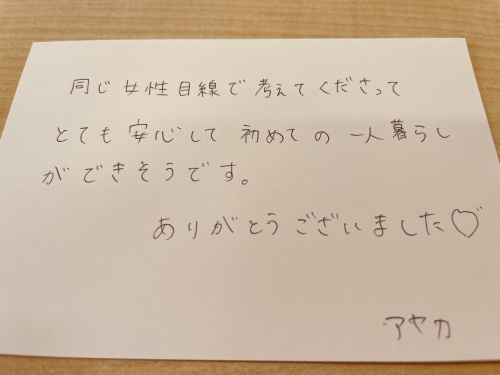 同じ女性目線で考えてくださって
とても安心して初めての一人暮らし
ができそうです。
ありがとうございました♡
アヤカ